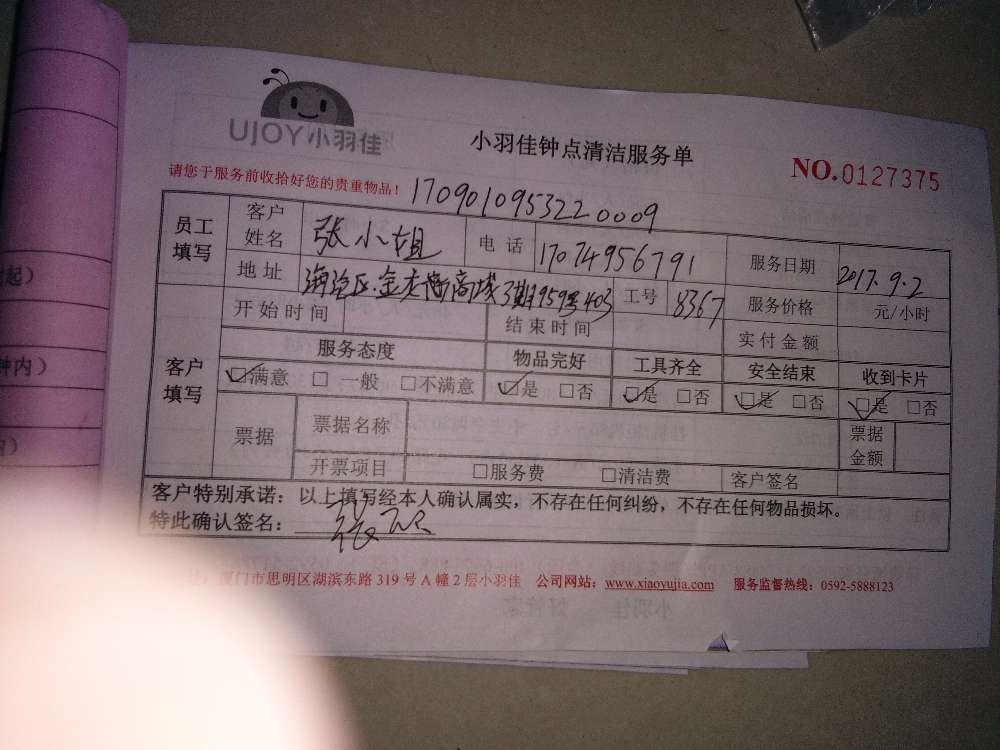 UJOY小羽佳
小羽佳钟点清洁服务单
NO.0127375
请您于服务前收拾好您的贵重物品!
1709010953220009
员工填写 客户姓名 张小姐 电话 17074956791 服务日期 2017.9.2
地址 海沧区 商城3期959号403 工号 8367 服务价格 元/小时
客户填写 开始时间 结束时间 实付金额
服务态度 物品完好 工具齐全 安全结束 收到卡片
☑满意 □一般 □不满意 ☑是 □否 ☑是 □否 ☑是 □否 ☑是 □否
票据 票据名称 票据金额
开票项目 □服务费 □清洁费 客户签名
客户特别承诺:以上填写经本人确认属实,不存在任何纠纷,不存在任何物品损坏。
特此确认签名:
厦门市思明区湖滨东路319号A幢2层小羽佳 公司网站:www.xiaoyujia.com 服务监督热线:0592-5888123